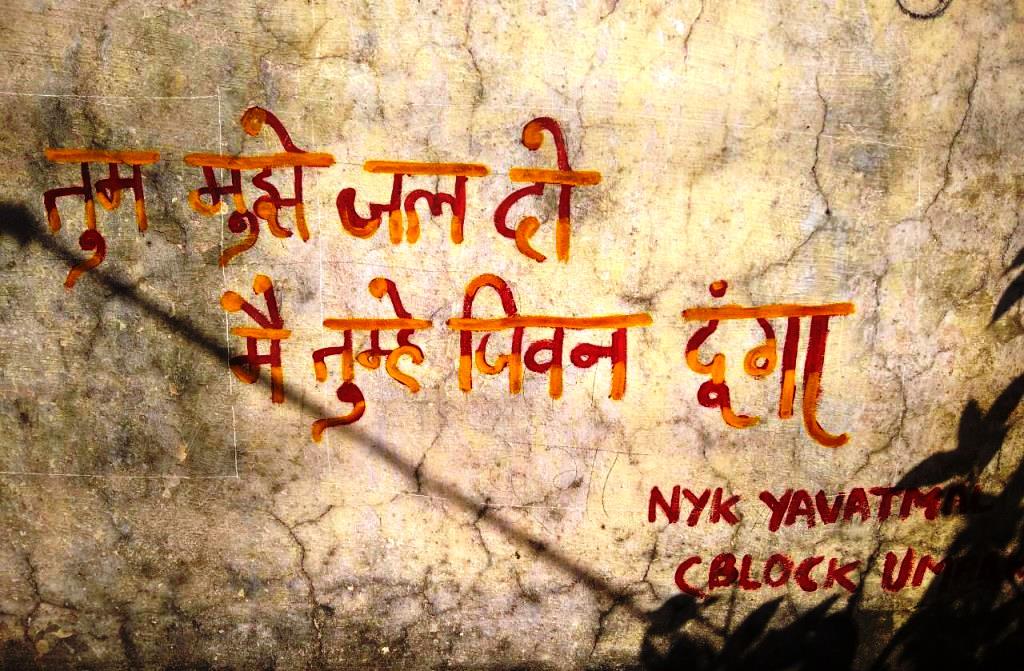 तुम मुझे जल दो
मै तुम्हे जिवन दूंगा
NYK YAVATMAL
CBLOCK